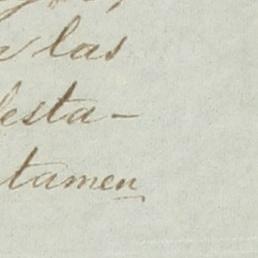 las
esta-
tamen